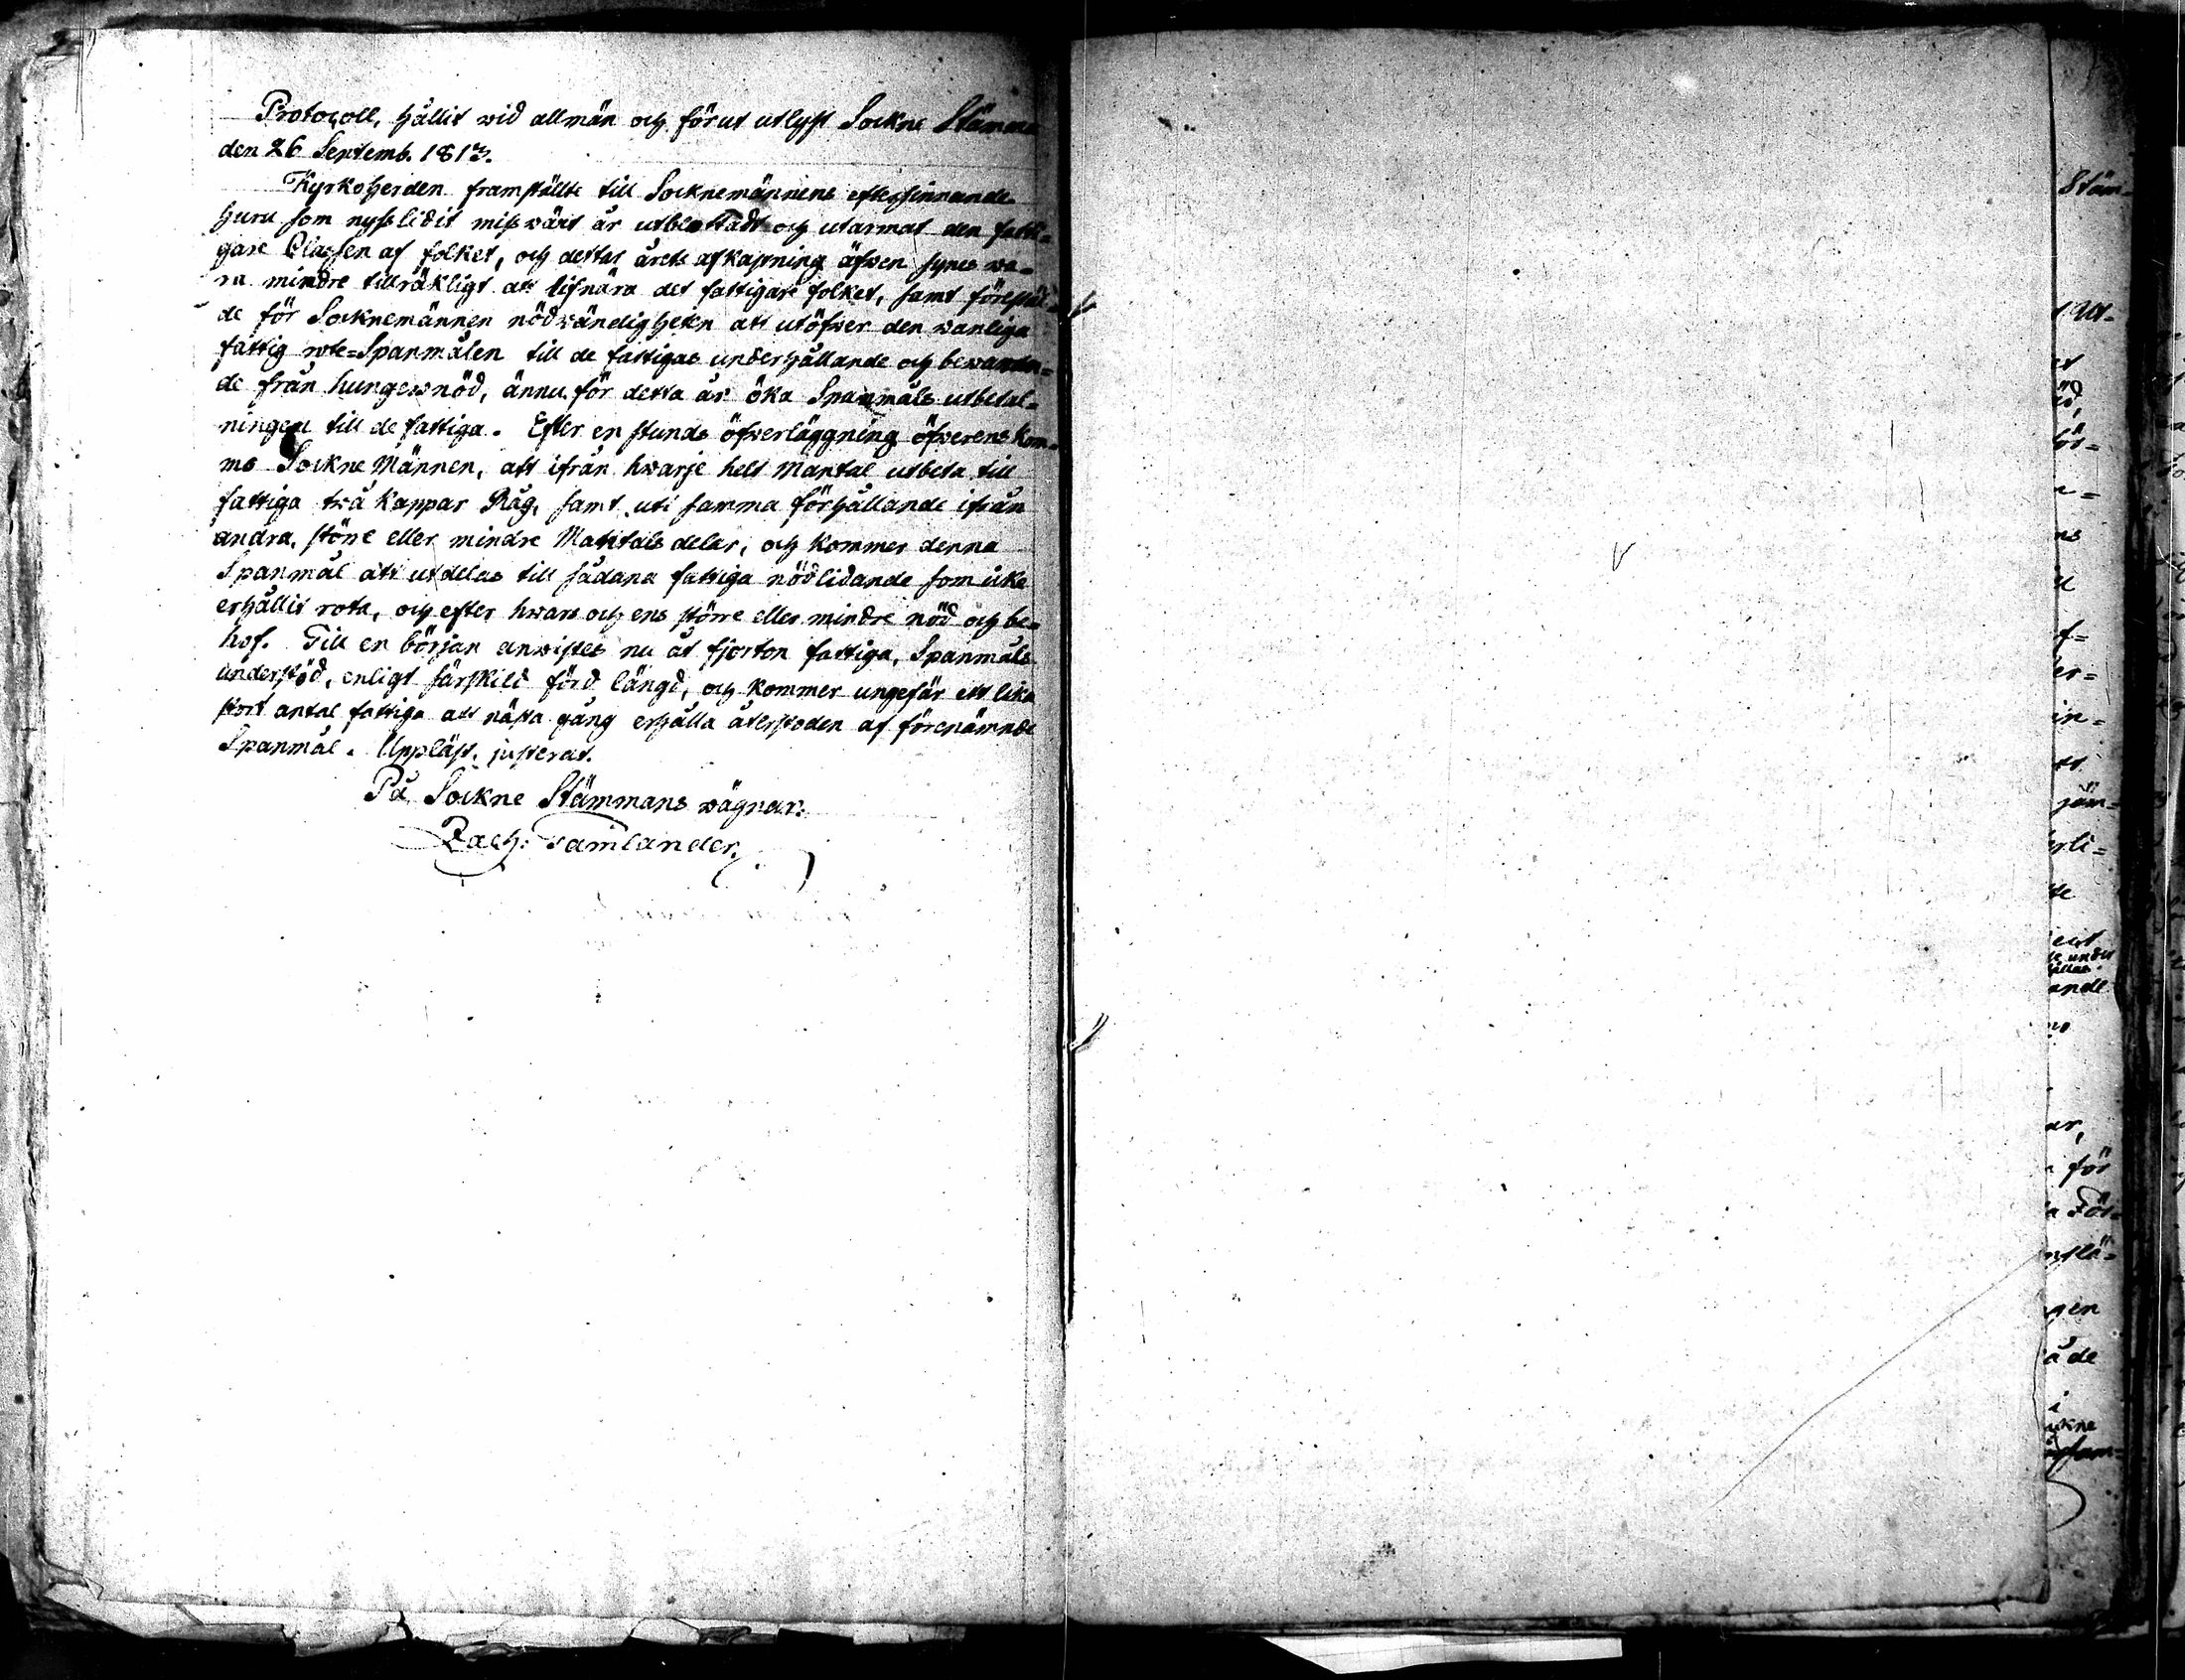 Protocoll, hållit wid allmän och förut utlyst Sockne Stämma
den 26 Septemb. 1813.
Kyrkoherden framställte till Socknemännens eftersinnande
huru som nysslidit misswäxt år utblottadt och utarmat den fatti=
gare Classen af folket, och dettas årets afkastning äfwen synes wa=
ra mindre tillräkligt att lifnära det fattigare folket, samt förestäl=
de för Socknemännen nödwändigheten att utöfwer den wanliga
fattig rote=Spanmålen till de fattigas underhållande och bewaran=
de från hungersnöd, ännu för detta år öka Spanmåls utbetal=
ningen till de fattiga. Efter en stunds öfwerläggning öfwerens kom=
mo Sockne Männen, att ifrån hwarje helt Mantal utbeta till
fattiga twå kappar Råg, samt uti samma förhållande ifrån
andra, större eller mindre Mantals delar, och kommer denna
Spanmål att utdelas till sådana fattiga nödlidande som icke
erhållit rota, och efter hwars och ens större eller mindre nöd och be=
hof. Till en början anwistes nu åt fjorton fattiga, Spanmåls
understöd, enligt särskild förd längd, och kommer ungefär ett lika
stort antal fattiga att nästa gång erhålla återstoden af förenämnde
Spanmål. Uppläst, justerat.
På Sockne Stämmans wägnar:
Zach: Tamlander.
Stäm=
Ut=
jäm=
ande
för
För=
de